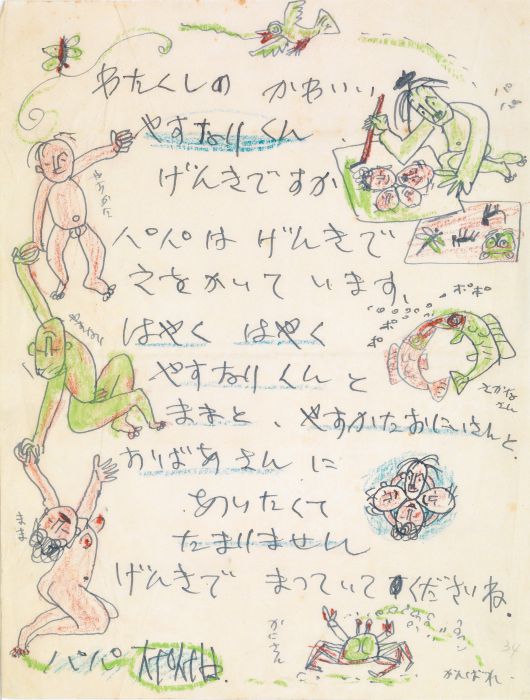 わたくしの かわいい
やすなりくん
げんきですか
パパは げんきで
えをかいて います、
はやく はやく
やすなりくん と
ままと、やすかたおにいさんと、
おばあさん に
あいたくて
たまりません
げんきで まっていてくださいね.
パパ
パパ
やすかた
やすなり
まま
ポポ
ポポ
さかな
さん
かにさん
がんばれ.
34